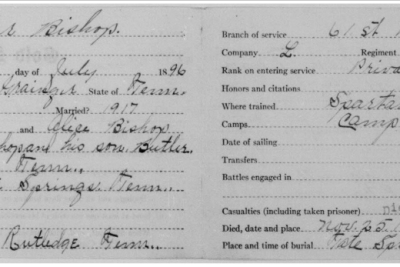 Bishop.
day of July 1896
Grainger State of Tenn.
Married? 1917
and Bishop
his son Butler
Tenn.
Springs Tenn.
Rutledge Tenn.
Branch of service 61 st
Company L. Regiment
Rank on entering service Priva
Honors and citations
Where trained Spartan
Camps Camp
Date of sailing
Transfers
Battles engaged in
Casualties (including taken prisoner)
Died, date and place Nov. 25.
Place and time of burial Tate Sp